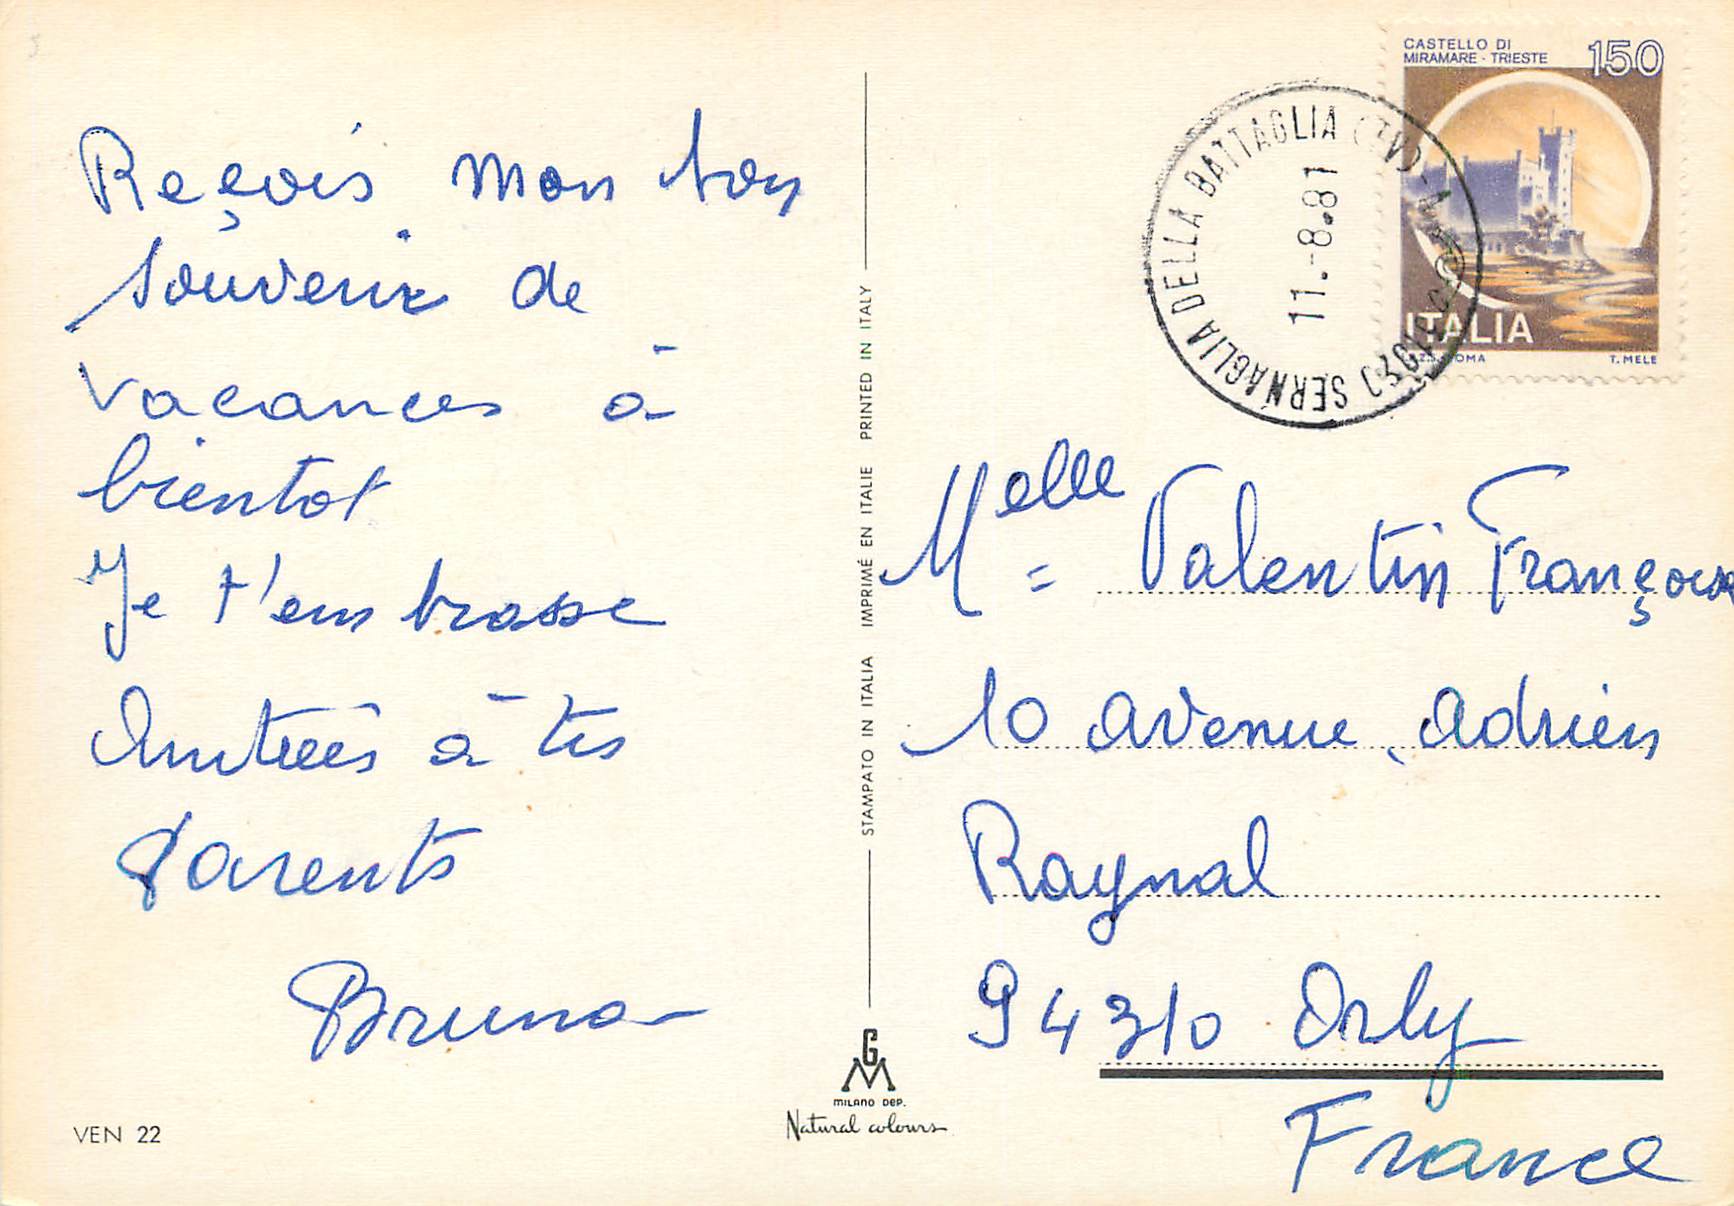 Reçois mon bon
souvenir de
vacances à
bientot
Je t'embrasse
Amitiées à tes
parents
Bruno
VEN 22
STAMPATO IN ITALIA IMPRIMÉ EN ITALIE PRINTED IN ITALY
GM
MILANO DEP.
Natural colours
CASTELLO DI
MIRAMARE - TRIESTE
150
ITALIA
ROMA
T. MELE
SERNAGLIA DELLA BATTAGLIA (TV) - A
11.-8.81
Melle Valentin Françoise
10 avenue Adrien
Raynal
94310 Orly
France